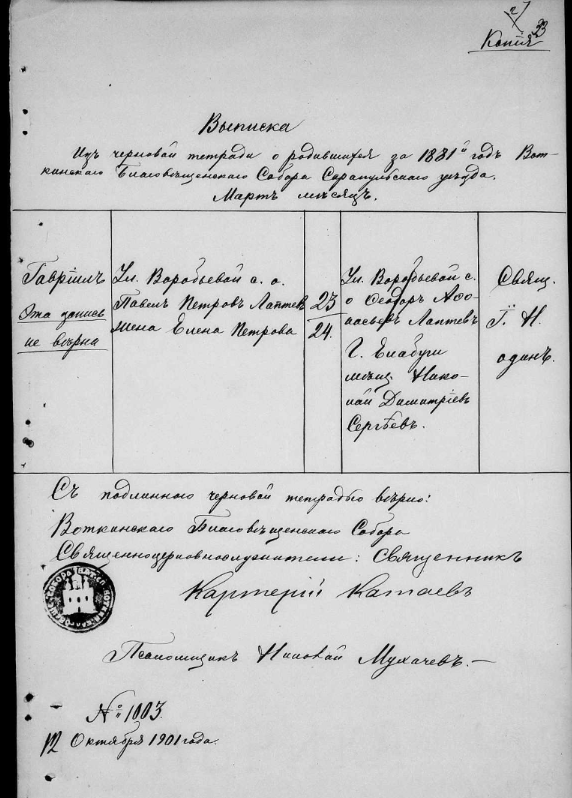 33
Копія
Выписка
Изъ черновой тетради о родившихся за 1881 годъ Вот-
кинскаго Благовѣщенскаго Собора Сарапульскаго уѣзда.
Мартъ мѣсяцъ.
Гавріилъ
Эта запись
не вѣрна
Ул. Воробьевой с. о.
Павелъ Петровъ Лаптев
жена Елена Петрова
23
24.
Ул. Воробьевой с.
о Ѳеодоръ Аѳо-
насьевъ Лаптевъ
Г. Елабуги
мѣщ. Нико-
лай Димитріев
Сергѣевъ.
Свящ.
І. Н
одинъ.
Съ подлинного черновой тетрадью вѣрно:
Воткинскаго Благовѣщенскаго Собора
Священноцерковнослужители: Священникъ
Картерій Катаевъ
Псаломщикъ Николай Мухачевъ.
№ 1003.
12 Октября 1901 года.